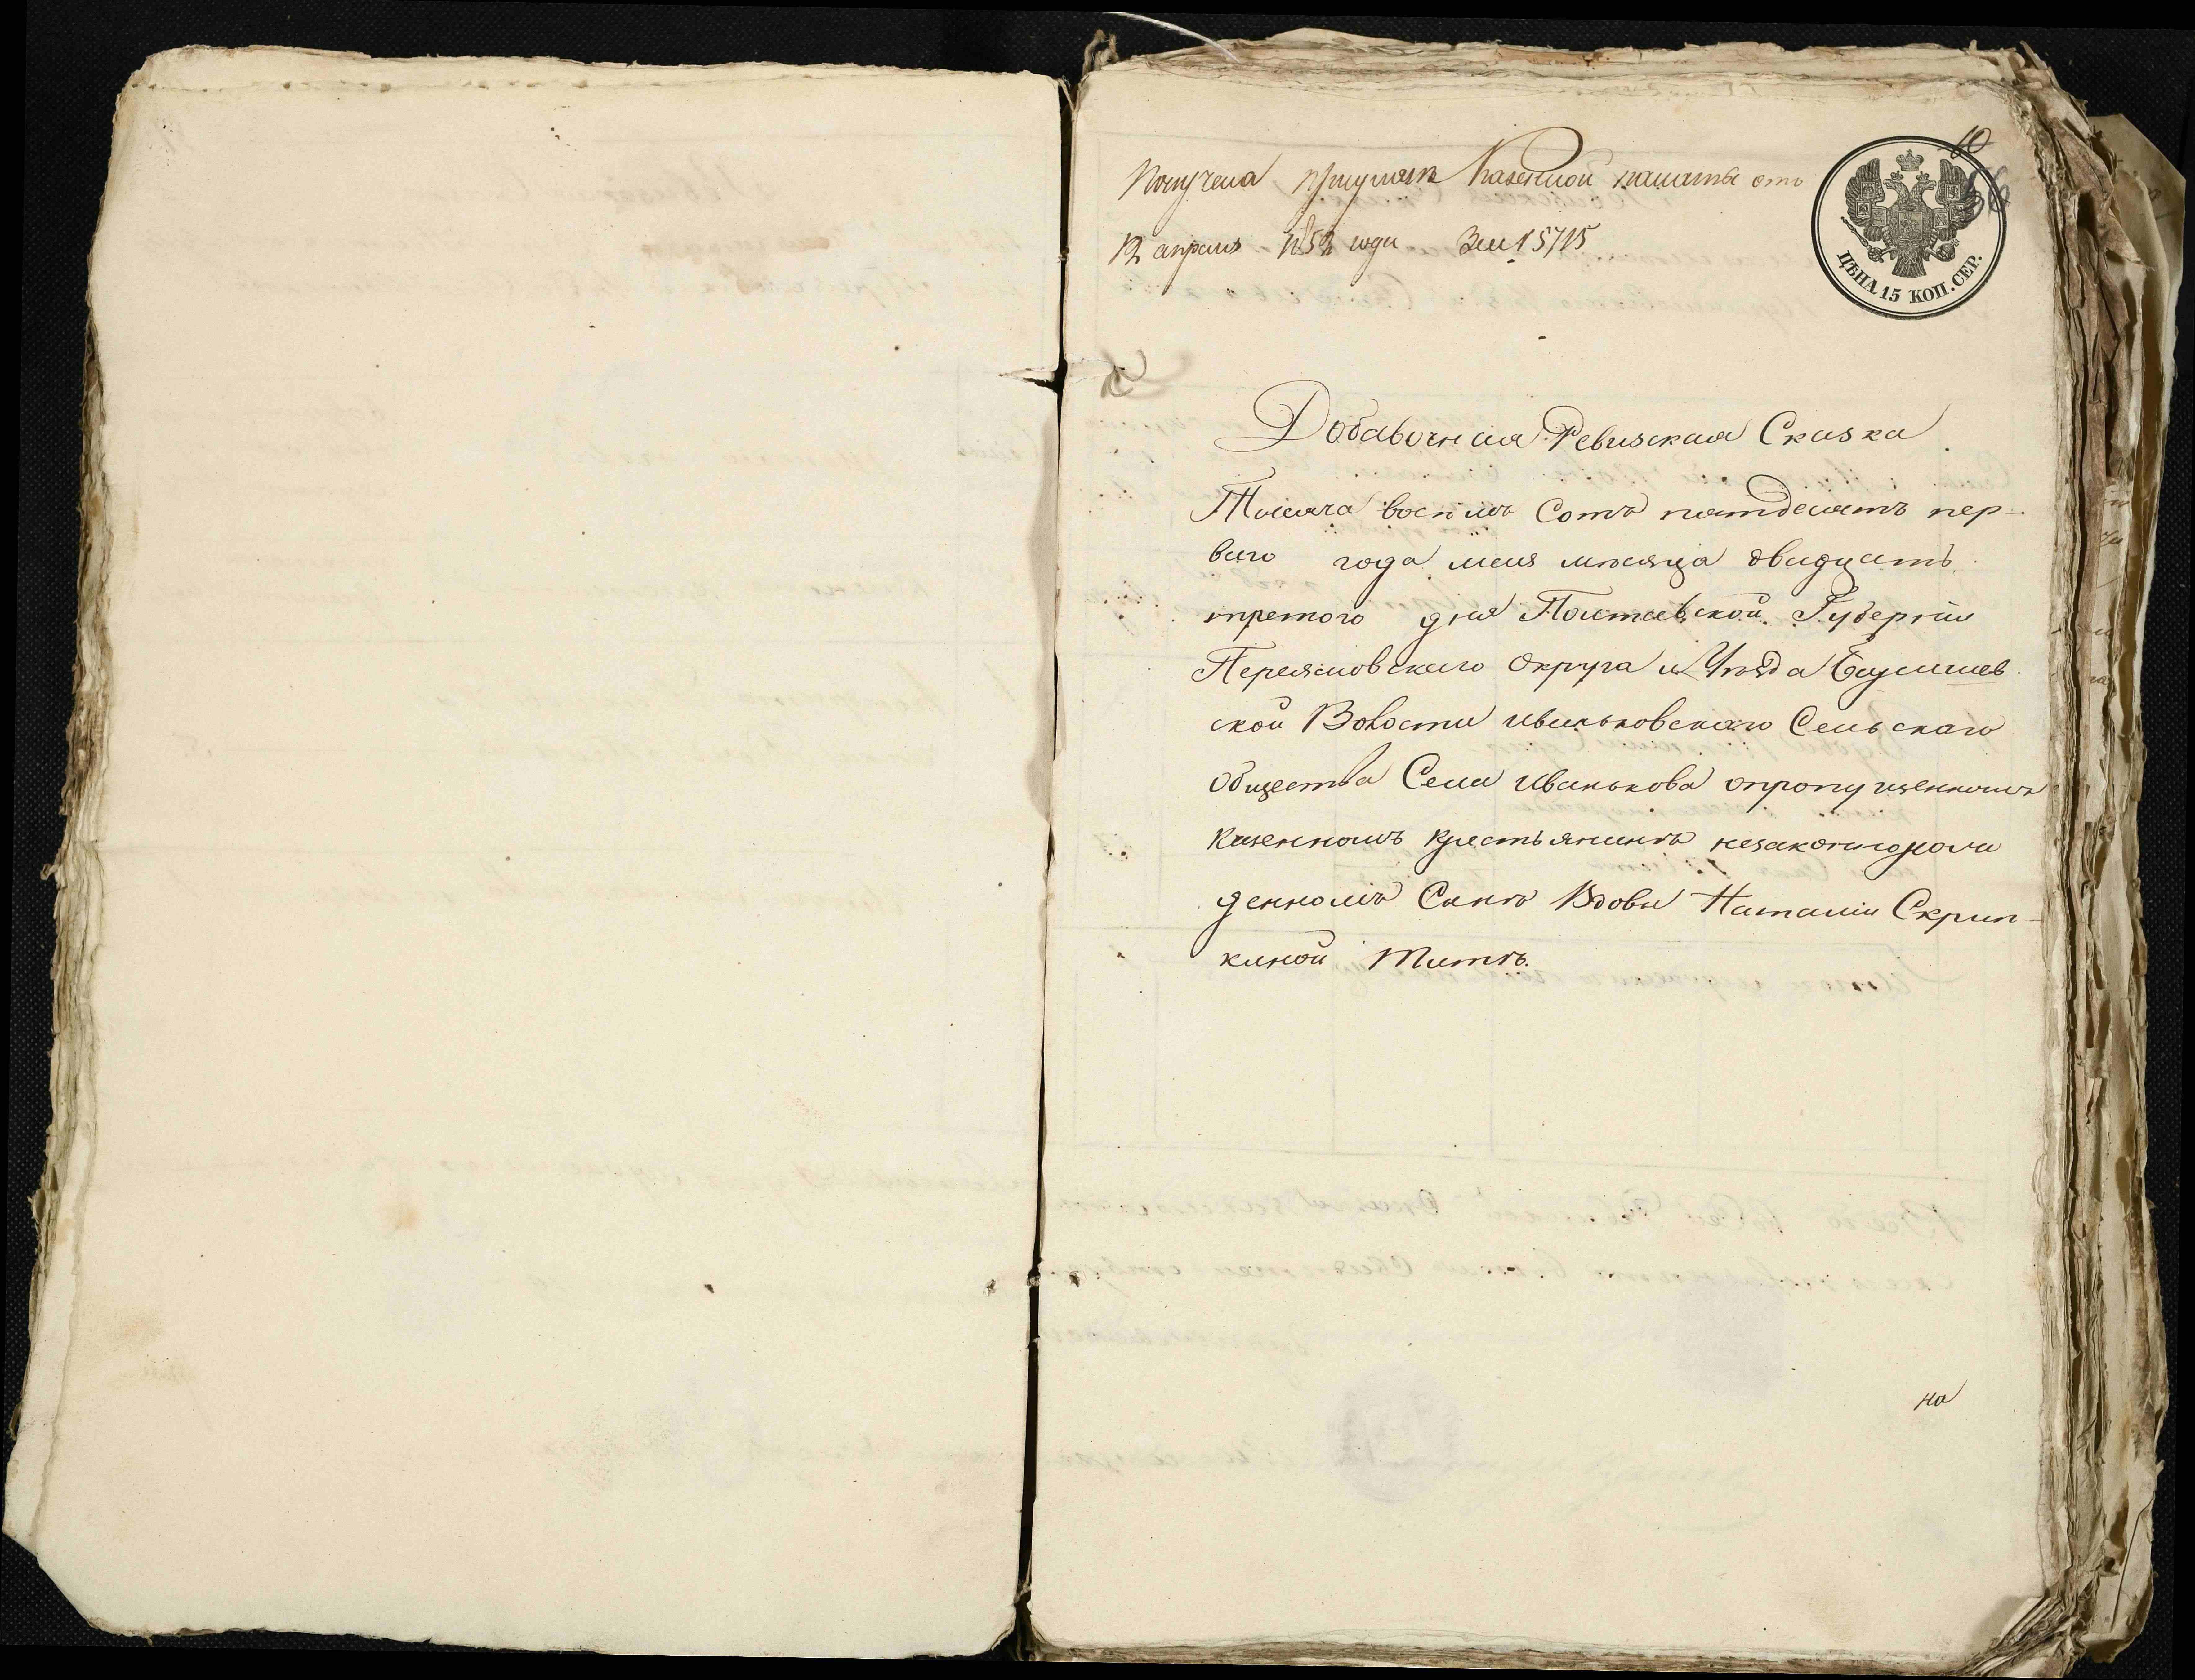 Получена приуказе Казенной палаты отъ
12 апреля 1852 года За № 15715
10
56
ЦѢНА 15 КОП. СЕР.
Добавочная Ревизская Сказка
Тысяча восемь Сотъ пятдесятъ пер-
ваго года мая мѣсяца двадцать
третого дня Полтавской Губерніи
Переясловскаго Округа и Уѣзда
ской Волости Иваньковскаго Сельскаго
Общества Села Иванькова опропущенномъ
Казенномъ Крестьянинѣ незаконнорож
денномъ Сынѣ Вдовы Наталіи Скрип-
киной Титѣ.
на